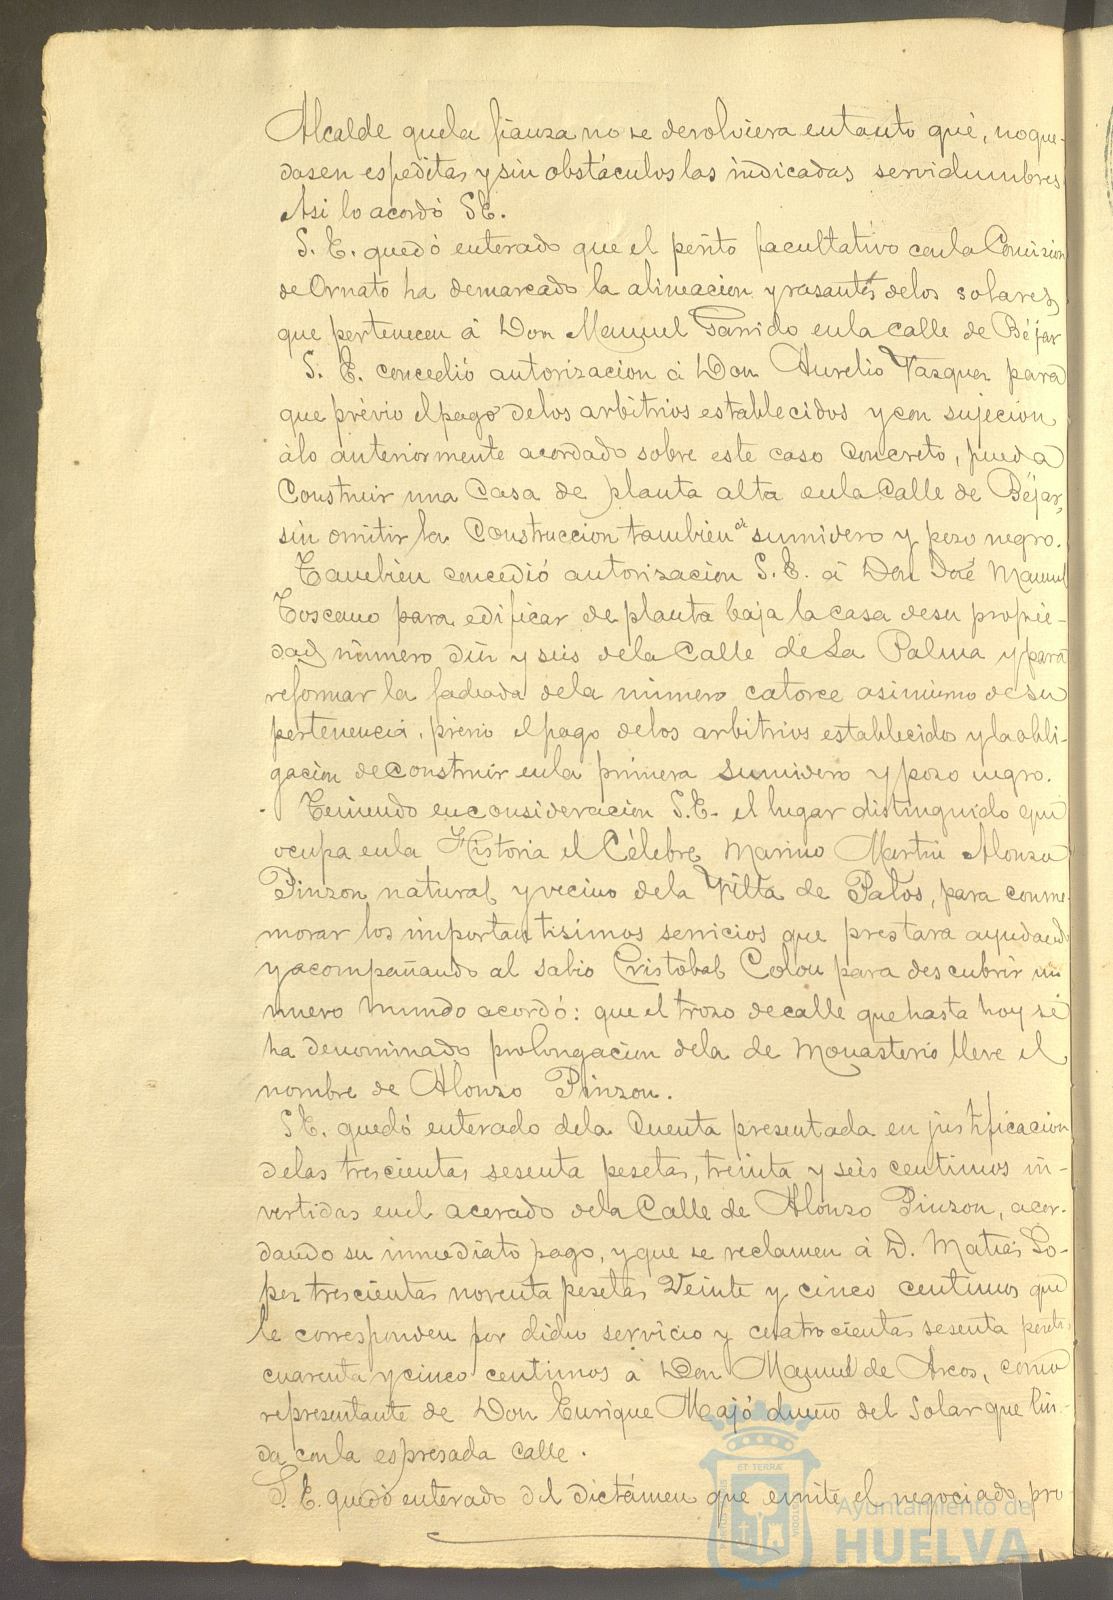 Alcalde que la fianza no se devolviera entanto qué, no que-
dasen espeditas y sin obstáculos las indicadas servidumbres
Asi lo acordó S.E.
S. E. quedó enterado que el perito facultativo con la Comision
de Ornato ha demarcado la alineacion y rasantes de los solares
que pertenecen á Don Manuel Garrido en la calle de Béjar
S. E. concedió autorizacion á Don Aurelio Vazquez para
que prévio el pago de los arbitrios establecidos y con sujecion
á lo anteriormente acordado sobre este caso concreto, pueda
Construir una Casa de planta alta en la Calle de Béjar,
sin omitir la Construccion tambien el sumidero y pozo negro.
Tambien concedió autorizacion S. E. á Don José Manuel
Toscano para edificar de planta baja la casa de su propie-
dad número diez y seis de la Calle de La Palma y para
reformar la fachada de la número catorce asimismo de su
pertenencia, previo el pago de los arbitrios establecidos y la obli-
gacion de Construir en la primera sumidero y pozo negro.
Teniendo en consideracion S.E. el lugar distinguido que
ocupa en la Historia el Célebre Marino Martin Alonso
Pinzon natural y vecino de la Villa de Palos, para conme-
morar los importantisimos servicios que prestara ayudando
y acompañando al sabio Cristobal Colon para descubrir un
nuevo mundo acordó: que el trozo de calle que hasta hoy se
ha denominado prolongacion de la de Monasterio lleve el
nombre de Alonso Pinzon.
S.E. quedó enterado de la Cuenta presentada en justificacion
de las trescientas sesenta pesetas, treinta y seis centimos in-
vertidas en el acerado de la Calle de Alonso Pinzon, acor-
dando su inmediato pago, y que se reclamen á D. Matias Lo-
pez trescientas noventa pesetas Veinte y cinco centimos que
le corresponden por dicho servicio y cuatrocientas sesenta pesetas
cuarenta y cinco centimos á Don Manuel de Arcos, como
representante de Don Enrique Majó dueño del Solar que lin-
da con la espresada calle.
S. E. quedó enterado del dictámen que emite el negociado, pro-
Ayuntamiento de
HUELVA